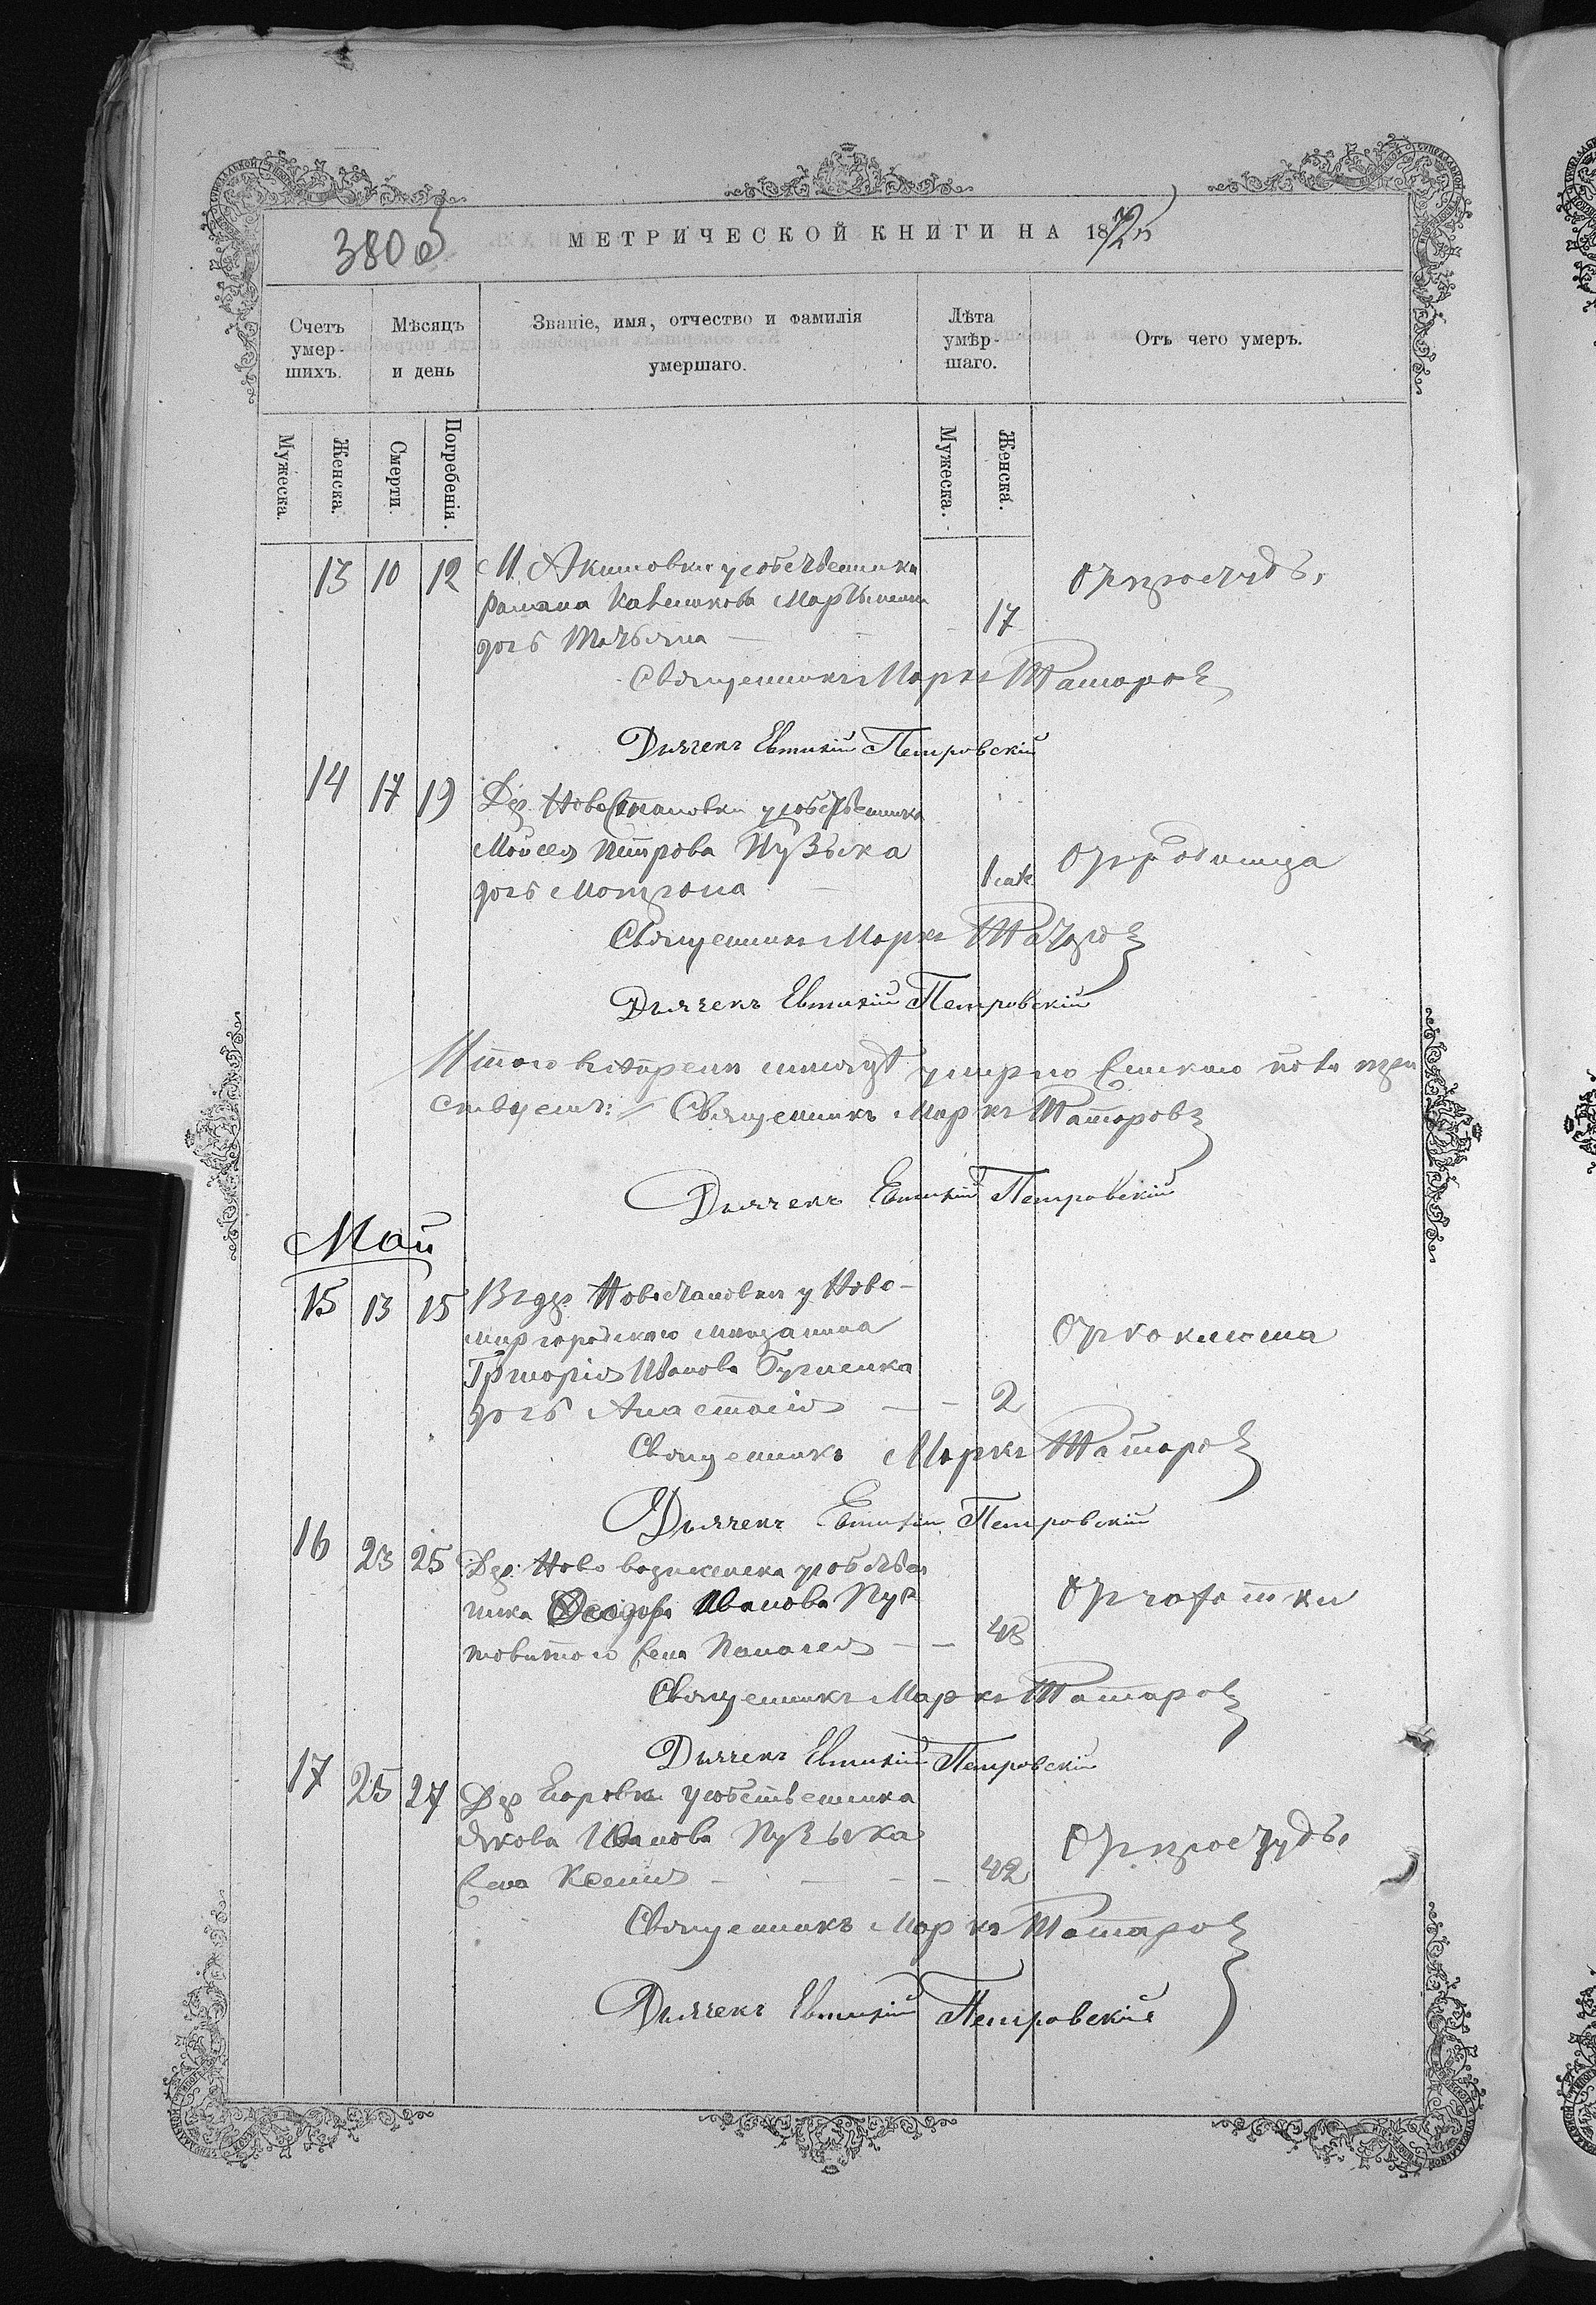 380 об
МЕТРИЧЕСКОЙ КНИГИ НА 1872
Счетъ умер- шихъ.
Мѣсяцъ и день
Званіе, имя, отчество и фамилія умершаго.
Лѣта умѣр- шаго.
Отъ чего умеръ.
Мужеска. Женска. Смерти. Погребенія. Мужеска. Женска.
13 10 12 М. Акимовки у собственика
Романа
дочь Татьяна 17
Священникъ Маркъ Татаров
Дьячекъ Евтихій Петровскій
14 17 19 Дер. Новостановки у собственика
Мойсея Петрова Пузыка
дочь Мотрона
Священникъ Маркъ Татаров
Дьячекъ Евтихій Петровскій
Итого въ Апрелѣ умерло
Священникъ Маркъ Татаровъ
Дьячекъ Евтихій Петровскій
Май
15 13 15 В дер. Новостановки у Ново-
миргородского мещанина
Григорія Иванова
дочь Анастасія 2 От коклюша
Священникъ Маркъ Татаров
Дьячекъ Евтихій Петровскій
16 23 25 Дер. Ново у собствен
ника Феодора Иванова
жена 48 От чахотки
Священникъ Маркъ Татаров
Дьячекъ Евтихій Петровскій
17 25 27 Дер Егоровки у собственника
Якова Иванова Пузыка
жена Ксенія 42 От простуды
Священникъ Маркъ Татаров
Дьячекъ Евтихій Петровскій